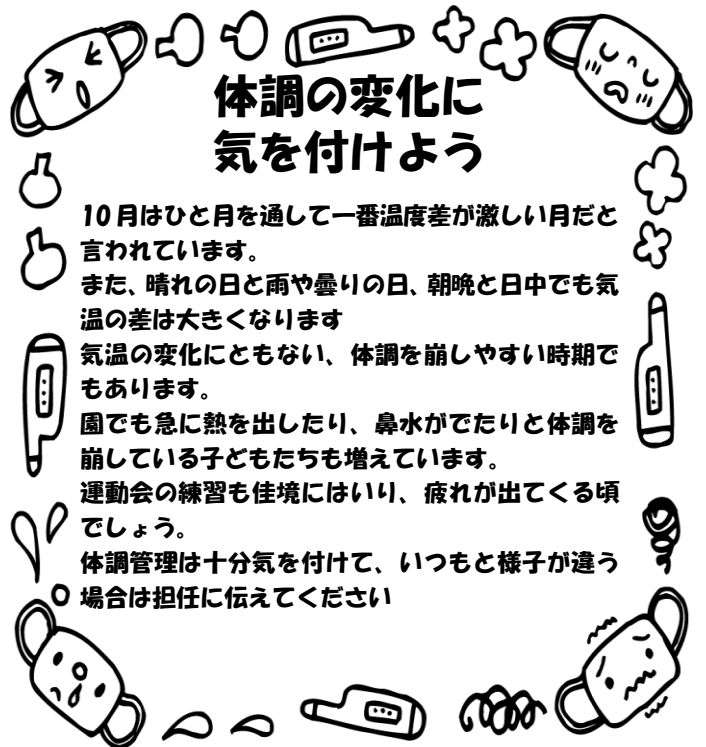 体調の変化に
気を付けよう
10月はひと月を通して一番温度差が激しい月だと
言われています。
また、晴れの日と雨や曇りの日、朝晩と日中でも気
温の差は大きくなります
気温の変化にともない、体調を崩しやすい時期で
もあります。
園でも急に熱を出したり、鼻水がでたりと体調を
崩している子どもたちも増えています。
運動会の練習も佳境にはいり、疲れが出てくる頃
でしょう。
体調管理は十分気を付けて、いつもと様子が違う
場合は担任に伝えてください